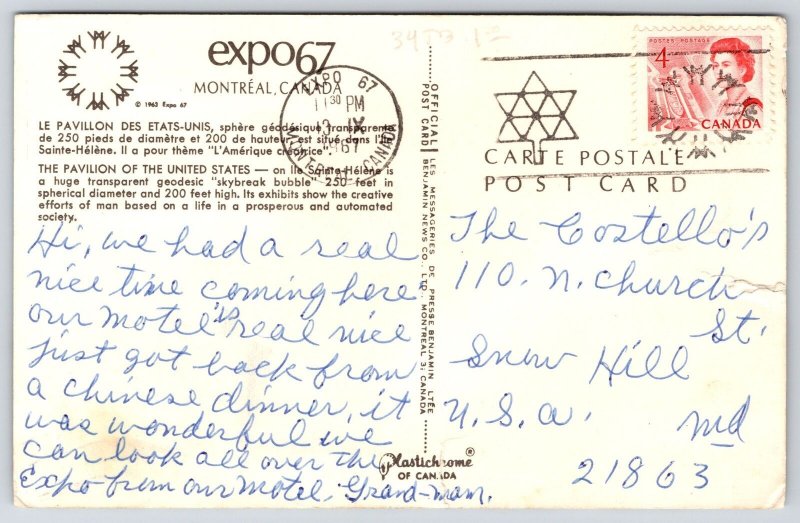 expo67
MONTRÉAL, CANADA
© 1963 Expo 67
LE PAVILLON DES ETATS-UNIS, sphère géodésique transparente
de 250 pieds de diamètre et 200 de hauteur est situé dans l'Ile
Sainte-Hélène. Il a pour thème "L'Amérique créatrice".
THE PAVILION OF THE UNITED STATES — on Ile Sainte-Hélène is
a huge transparent geodesic "skybreak bubble" 250 feet in
spherical diameter and 200 feet high. Its exhibits show the creative
efforts of man based on a life in a prosperous and automated
society.
Hi, we had a real
nice time coming here
our motel is real nice
just got back from
a chinese dinner, it
was wonderful we
can look all over the
Expo from our motel. Grand-mam.
39TB.12
EXPO 67
11 30 PM
IX
1967
MONTREAL CANADA
OFFICIAL POST CARD
LES MESSAGERIES DE PRESSE BENJAMIN LTÉE
BENJAMIN NEWS CO. LTD. MONTREAL 3, CANADA
Plastichrome®
OF CANADA
POSTES POSTAGE
4
CANADA
CARTE POSTALE
POST CARD
The Costello's
110. N. Church
St.
Snow Hill
U.S.A. Md
21863